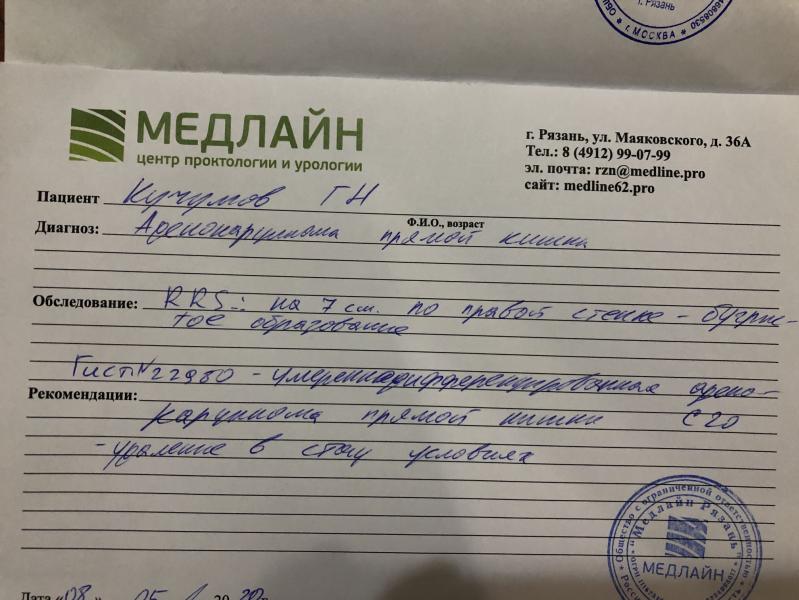 г. Рязань
* г. МОСКВА *
МЕДЛАЙН
центр проктологии и урологии
г. Рязань, ул. Маяковского, д. 36А
Тел.: 8 (4912) 99-07-99
эл. почта: rzn@medline.pro
сайт: medline62.pro
Пациент Кучумов ГН
Ф.И.О., возраст
Диагноз: Аденокарцинома прямой кишки
Обследование: RRS: на 7 см. по правой стенке - бугрис-
тое образование
Гист №22980 - умереннодифференцированная адено-
Рекомендации:
карцинома прямой кишки С20
- удаление в стац условиях
Общество с ограниченной ответственностью
"Медлайн Рязань"
МЕДЛАЙН
Дата «08 » 05 2020г